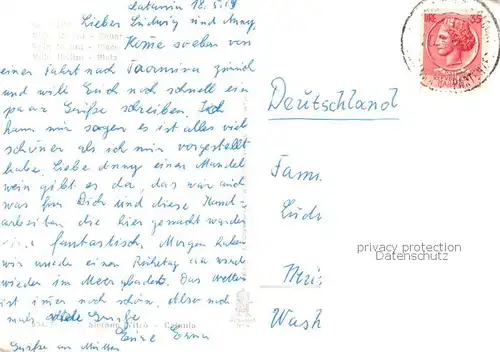 Catania 18.5.19
Lieber Ludwig und Anny,
Komme soeben von
einer Fahrt nach Taormina zurück
und will Euch noch schnell ein
paar Grüße schreiben. Ich
kann nur sagen es ist alles viel
schöner als ich mir vorgestellt
habe. Liebe Anny einen Mandel
wein gibt es da, das wär auch
was für Dich und diese Hand-
arbeiten die hier gemacht werden
fantastisch. Morgen haben
wir wieder einen Ruhetag da wird
wieder im Meer gebadet. Das Wetter
ist immer noch schön. Also noch
mals viele Grüße
Eure Erna
Grüße an Mutter
Deutschland
Fam.
Ludw
Wash
privacy protection
Datenschutz